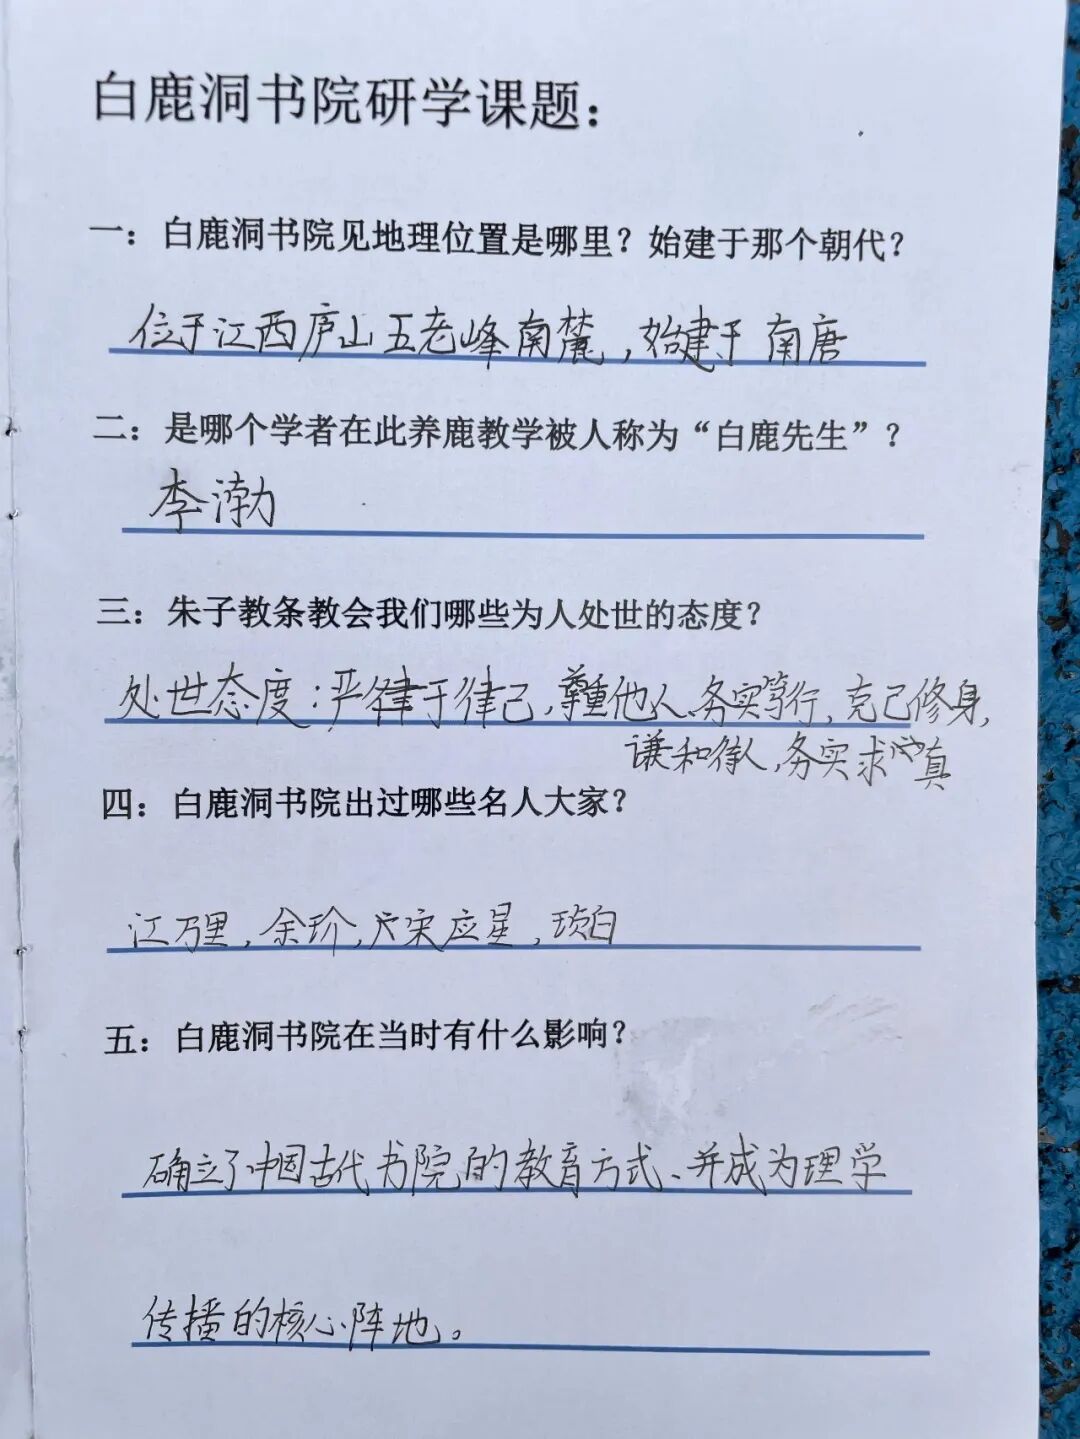 白鹿洞书院研学课题：
一：白鹿洞书院见地理位置是哪里？始建于那个朝代？
位于江西庐山五老峰南麓，始建于南唐
二：是哪个学者在此养鹿教学被人称为“白鹿先生”？
李渤
三：朱子教条教会我们哪些为人处世的态度？
处世态度：严律于律己，尊重他人、务实笃行，克己修身，
谦和待人，务实求真
四：白鹿洞书院出过哪些名人大家？
江万里，余玠，宋应星，
五：白鹿洞书院在当时有什么影响？
确立了中国古代书院的教育方式、并成为理学
传播的核心阵地。